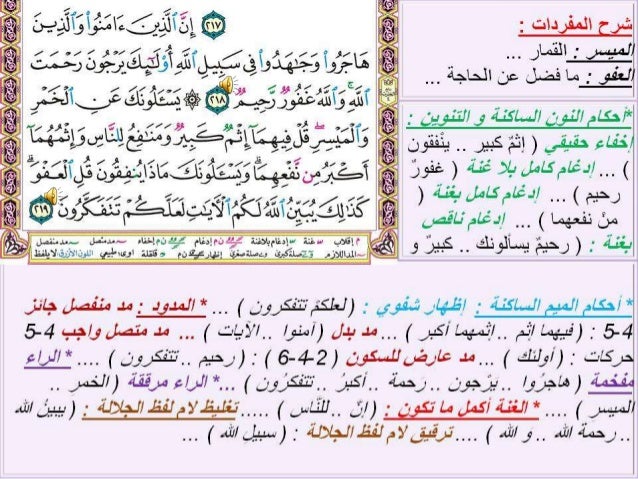 شرح المفردات :
الميسر : القمار ...
العفو : ما فضل عن الحاجة ...
*أحكام النون الساكنة و التنوين :
إخفاء حقيقي ( إثمٌ كبير .. ينْفقون
) ... إدغام كامل بلا غنة ( غفورٌ
رحيم ) ... إدغام كامل بغنة (
منْ نفعهما ) ... إدغام ناقص
بغنة : ( رحيمٌ يسألونك .. كبيرٌ و
﴿٢١٧﴾ إِنَّ ٱلَّذِينَ ءَامَنُوا۟ وَٱلَّذِينَ
هَاجَرُوا۟ وَجَـٰهَدُوا۟ فِى سَبِيلِ ٱللَّهِ أُو۟لَـٰٓئِكَ يَرْجُونَ رَحْمَتَ
ٱللَّهِ وَٱللَّهُ غَفُورٌ رَّحِيمٌ ﴿٢١٨﴾ ۞ يَسْـَٔلُونَكَ عَنِ ٱلْخَمْرِ
وَٱلْمَيْسِرِ قُلْ فِيهِمَآ إِثْمٌ كَبِيرٌ وَمَنَـٰفِعُ لِلنَّاسِ وَإِثْمُهُمَآ
أَكْبَرُ مِن نَّفْعِهِمَا وَيَسْـَٔلُونَكَ مَاذَا يُنفِقُونَ قُلِ ٱلْعَفْوَ
كَذَٰلِكَ يُبَيِّنُ ٱللَّهُ لَكُمُ ٱلْـَٔايَـٰتِ لَعَلَّكُمْ تَتَفَكَّرُونَ ﴿٢١٩﴾
* أحكام الميم الساكنة : إظهار شفوي : ( لعلكمْ تتفكرون ) ... * المدود : مد منفصل جائز
4-5 : ( فيهما إثم .. إثمهما أكبر ) ... مد بدل ( آمنوا .. الآيات ) ... مد متصل واجب 4-5
حركات : ( أولئك ) ... مد عارض للسكون ( 2-4-6 ) : ( رحيم .. تتفكرون ) .... * الراء
مفخمة ( هاجرُوا .. يرْجون .. رحمة .. أكبرُ .. تتفكرُون ) ...* الراء مرققة ( الخمرِ ..
الميسرِ ) .... * الغنة أكمل ما تكون : ( إنّ .. للنّاس ) ..... تغليظ لام لفظ الجلالة : ( يبينُ الله
.. رحمةَ الله .. و الله ) .... ترقيق لام لفظ الجلالة : ( سبيلِ الله ) ...